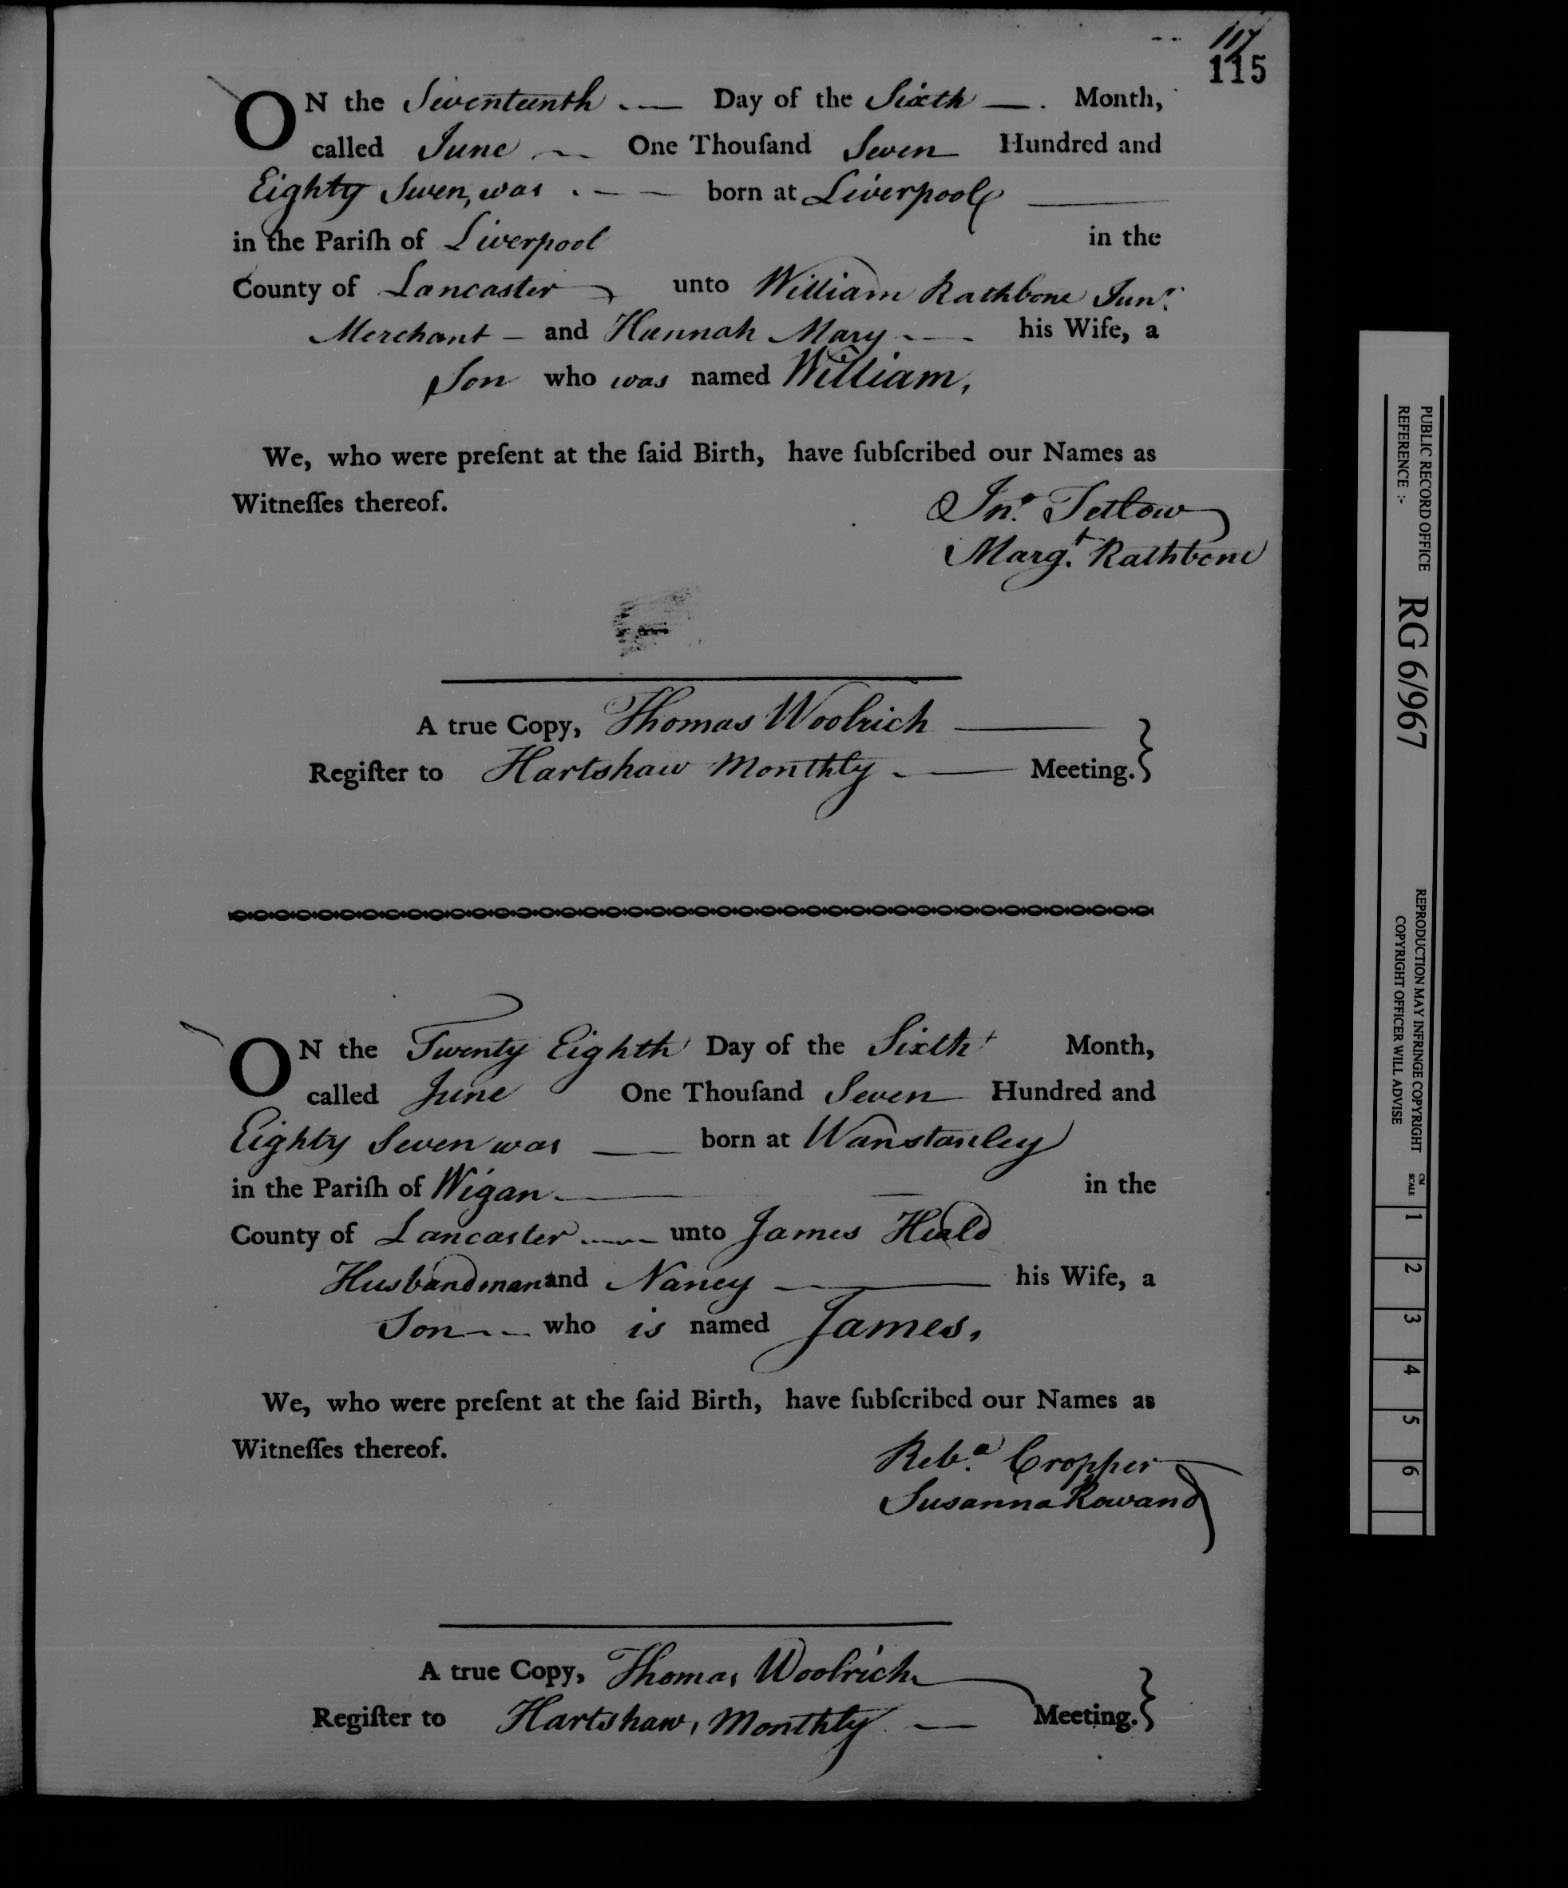 117
115
ON the Seventeenth Day of the Sixth Month,
called June One Thouſand Seven Hundred and
Eighty Seven, was born at Liverpool
in the Pariſh of Liverpool in the
County of Lancaster unto William Rathbone Junr.
Merchant and Hannah Mary his Wife, a
Son who was named William,
We, who were preſent at the ſaid Birth, have ſubſcribed our Names as
Witneſſes thereof.
Jno. Tetlow
Margt. Rathbone
A true Copy, Thomas Woolrich
Regiſter to Hartshaw Monthly Meeting.
ON the Twenty Eighth Day of the Sixth Month,
called June One Thouſand Seven Hundred and
Eighty Seven was born at Wanstanley
in the Pariſh of Wigan in the
County of Lancaster unto James Heald
Husbandman and Nancy his Wife, a
Son who is named James,
We, who were preſent at the ſaid Birth, have ſubſcribed our Names as
Witneſſes thereof.
Reba. Cropper
Susanna Rowand
A true Copy, Thomas Woolrich
Regiſter to Hartshaw, Monthly Meeting.
PUBLIC RECORD OFFICE
REFERENCE :-
RG 6/967
REPRODUCTION MAY INFRINGE COPYRIGHT
COPYRIGHT OFFICER WILL ADVISE
CM
SCALE
1
2
3
4
5
6